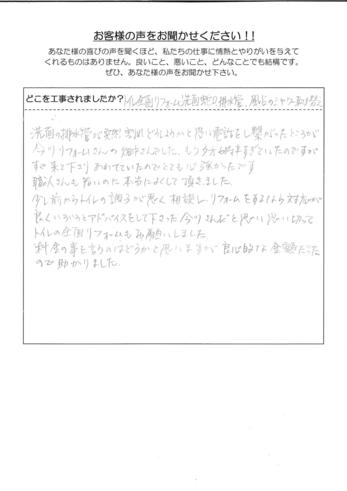 お客様の声をお聞かせください！！
あなた様の喜びの声を聞くほど、私たちの仕事に情熱とやりがいを与えて
くれるものはありません。良いこと、悪いこと、どんなことでも結構です。
ぜひ、あなた様の声をお聞かせ下さい。
どこを工事されましたか？トイレ全面リフォーム 洗面 排水管、風呂のシャワー取り替え
洗面の排水管が突然 どうしようかと思い電話をし繋がったところが
今リリフォームさんの でした。もう夕方 すぎていたのですが
すぐ来て下さり とても心強かったです
職人さんも 本当によくして頂きました
少し前からトイレの調子が悪く相談し リフォームをするなら
良くいろいろとアドバイスをして下さった 思い 思い切って
トイレの全面リフォームもお願いしました
料金の事を言うのはどうかと思いますが 良心的な金額だった
ので助かりました。